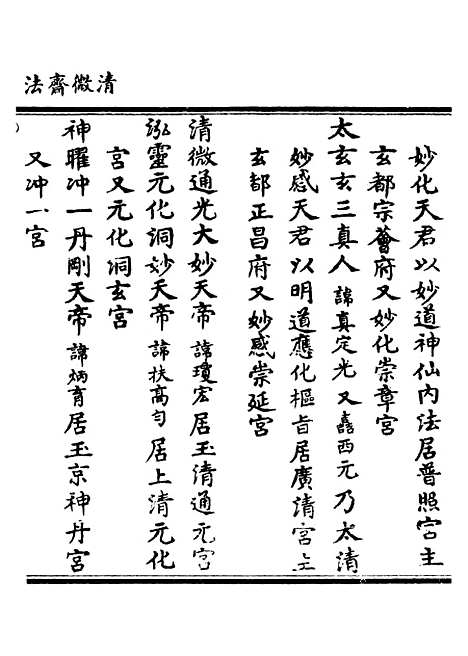 清微齋法
妙化天君以妙道神仙内法居普照宮主
玄都宗薈府又妙化崇章宮
太玄玄三真人諱真定光又譶西元乃太清
妙感天君以明道應化樞旨居廣清宮主
玄都正昌府又妙感崇延宮
清微通光大妙天帝諱瓊宏居玉清通元宮
泓靈元化洞妙天帝諱扶高勻居上清元化
宮又元化洞玄宮
神曜冲一丹剛天帝諱炳育居玉京神丹宮
又冲一宮